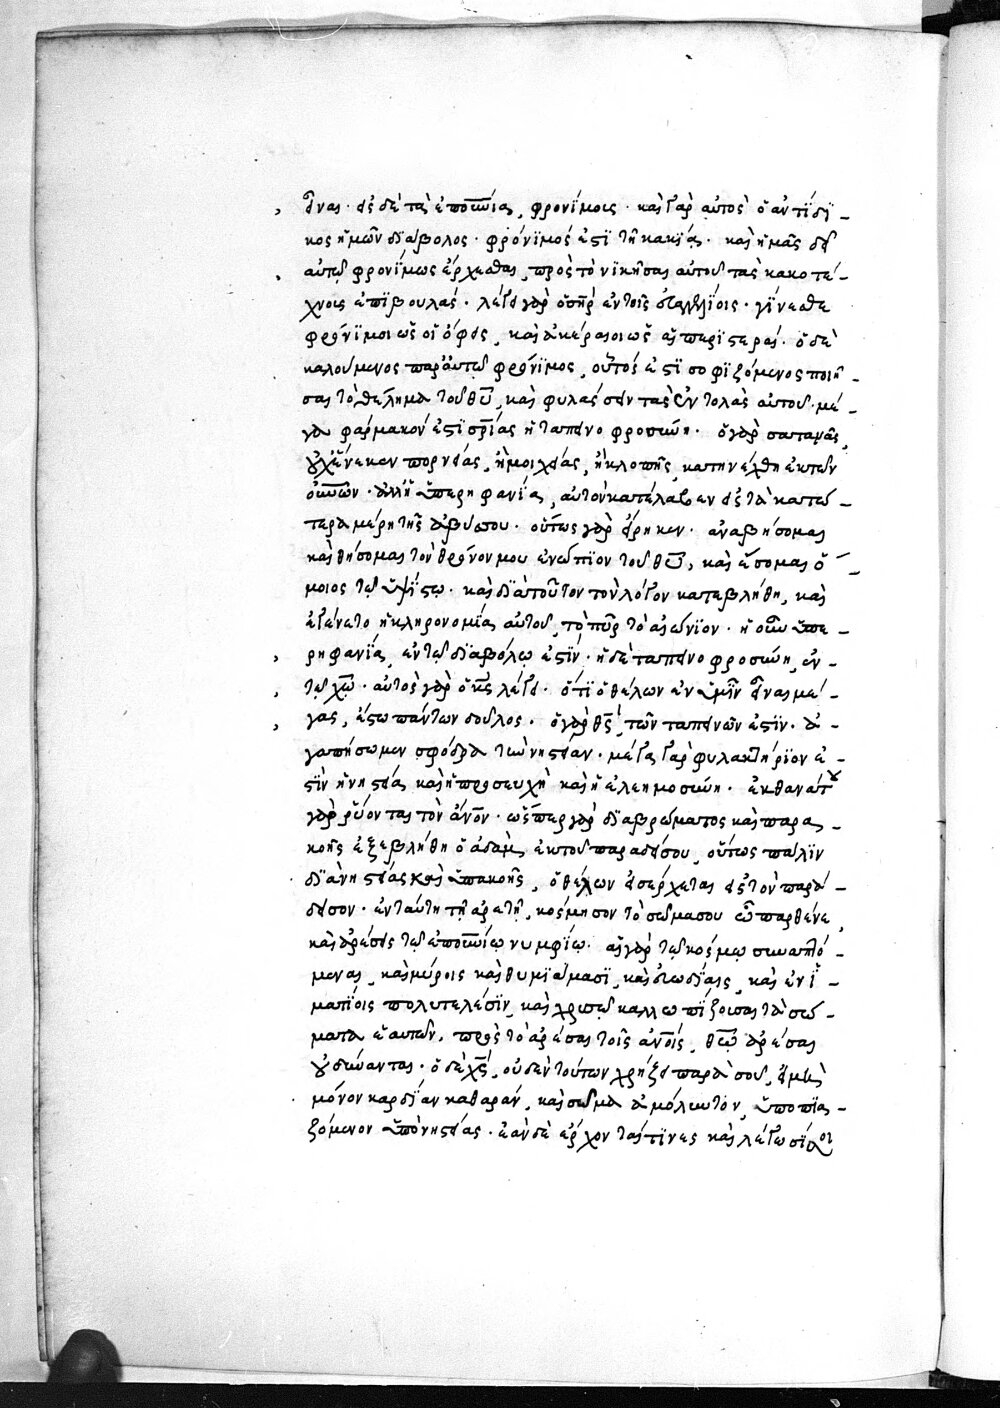 εἶναι · εἰς δὲ τὰ ἐπουράνια, φρονίμοις · καὶ γὰρ αὐτὸς ὁ ἀντίδι -
κος ἡμῶν διάβολος · φρόνιμός ἐστι τῇ κακίᾳ · καὶ ἡμᾶς δεῖ
αὐτῷ φρονίμως ἔρχεσθαι, πρὸς τὸ νικῆσαι αὐτοῦ τὰς κακοτέ -
χνοις ἐπιβουλάς · λέγει γὰρ ὁ σὴρ ἐν τοῖς εὐαγγελίοις · γίνεσθε
φρόνιμοι ὡς οἱ ὄφεις, καὶ ἀκέραιοι ὡς αἱ περιστεραί · ὁ δὲ
καλούμενος παρ' αὐτῷ φρόνιμος, οὗτός ἐστι σοφιζόμενος ποιῆ -
σαι τὸ θέλημα τοῦ θυ, καὶ φυλάσσειν τὰς ἐντολὰς αὐτοῦ · μέ -
γα φάρμακόν ἐστι σρίας ἡ ταπεινοφροσύνη · ὁ γὰρ σατανᾶς,
οὐχ ἕνεκεν πορνείας, ἢ μοιχείας, ἢ κλοπῆς, κατηνέχθη ἐκ τῶν
οὐνῶν · ἀλλ' ἡ ὑπερηφανία, αὐτὸν κατέλαβεν εἰς τὰ κατώ -
τερα μέρη τῆς ἀβύσσου · οὕτως γὰρ εἴρηκεν · ἀναβήσομαι
καὶ θήσομαι τὸν θρόνον μου ἐνώπιον τοῦ θυ, καὶ ἔσομαι ὅ -
μοιος τῷ ὑψίστῳ · καὶ διὰ τοῦτον τὸν λόγον κατεβλήθη, καὶ
ἐγένετο ἡ κληρονομία αὐτοῦ, τὸ πῦρ τὸ αἰώνιον · ἡ οὖν ὑπε -
ρηφανία, ἐν τῷ διαβόλῳ ἐστίν · ἡ δὲ ταπεινοφροσύνη, ἐν -
τῷ χω · αὐτὸς γὰρ ὁ κς λέγει · ὅτι ὁ θέλων ἐν ὑμῖν εἶναι μέ -
γας, ἔσω πάντων δοῦλος · ὁ γὰρ θς, τῶν ταπεινῶν ἐστιν · ἀ -
γαπήσωμεν σφόδρα τὴν νηστείαν · μέγα γὰρ φυλακτήριον ἐ -
στὶν ἡ νηστεία καὶ ἡ προσευχὴ καὶ ἡ ἐλεημοσύνη · ἐκ θανάτου
γὰρ ῥύονται τὸν ἄνον · ὥσπερ γὰρ διὰ βρώματος καὶ παρα -
κοῆς ἐξεβλήθη ὁ ἀδὰμ, ἐκ τοῦ παραδείσου, οὕτως πάλιν
διὰ νηστείας καὶ ὑπακοῆς, ὁ θέλων εἰσέρχεται εἰς τὸν παρά -
δεισον · ἐν ταύτῃ τῇ ἀρετῇ, κόσμησον τὸ σῶμά σου ὦ παρθένε,
καὶ ἀρέσεις τῷ ἐπουρανίῳ νυμφίῳ · αἱ γὰρ τῷ κόσμῳ συναπλό -
μεναι, καὶ μύροις καὶ θυμιάμασι, καὶ εὐωδίαις, καὶ ἐν ἱ -
ματίοις πολυτελέσιν, καὶ χρυσῷ καλλωπίζουσαι τὰ σώ -
ματα ἑαυτῶν, πρὸς τὸ ἀρέσαι τοῖς ἀνοις, θω ἀρέσαι
οὐ δύνανται · ὁ δὲ χς, οὐδὲν τούτων χρήζει παρά σου, εἰ μὴ
μόνον καρδίαν καθαράν, καὶ σῶμα ἀμόλυντον, ὑποπια -
ζόμενον ὑπὸ νηστείας · ἐὰν δὲ ἔρχονταί τινες καὶ λέγωσί σοι